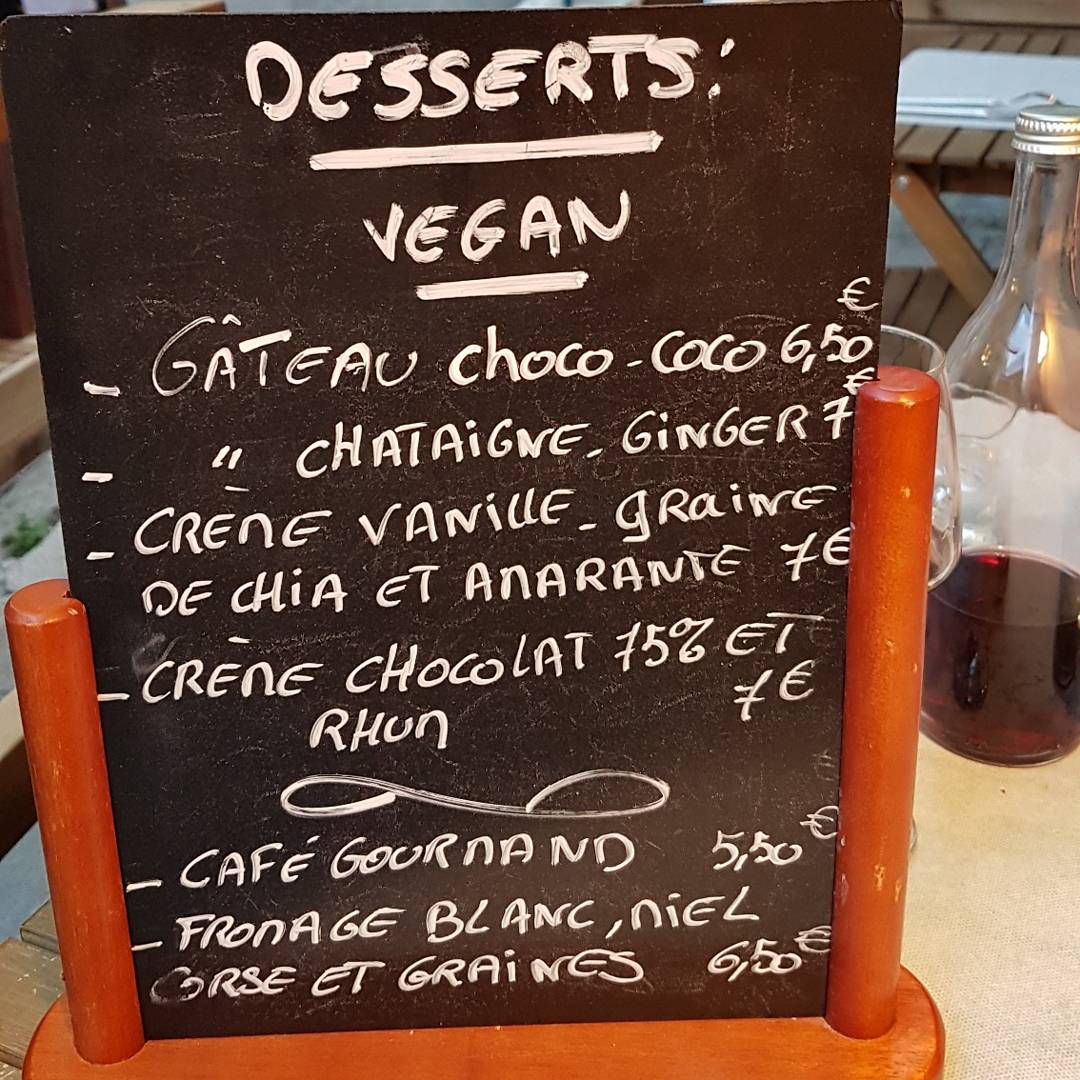 DESSERTS:
VEGAN
- GÂTEAU choco-coco 6,50 €
- " CHATAIGNE-GINGER 7 €
- CRÈME VANILLE-graine
DE CHIA ET AMARANTE 7€
- CRÈME CHOCOLAT 75% ET
RHUM 7€
- CAFÉ GOURMAND 5,50 €
- FROMAGE BLANC, MIEL
CORSE ET GRAINES 6,50 €